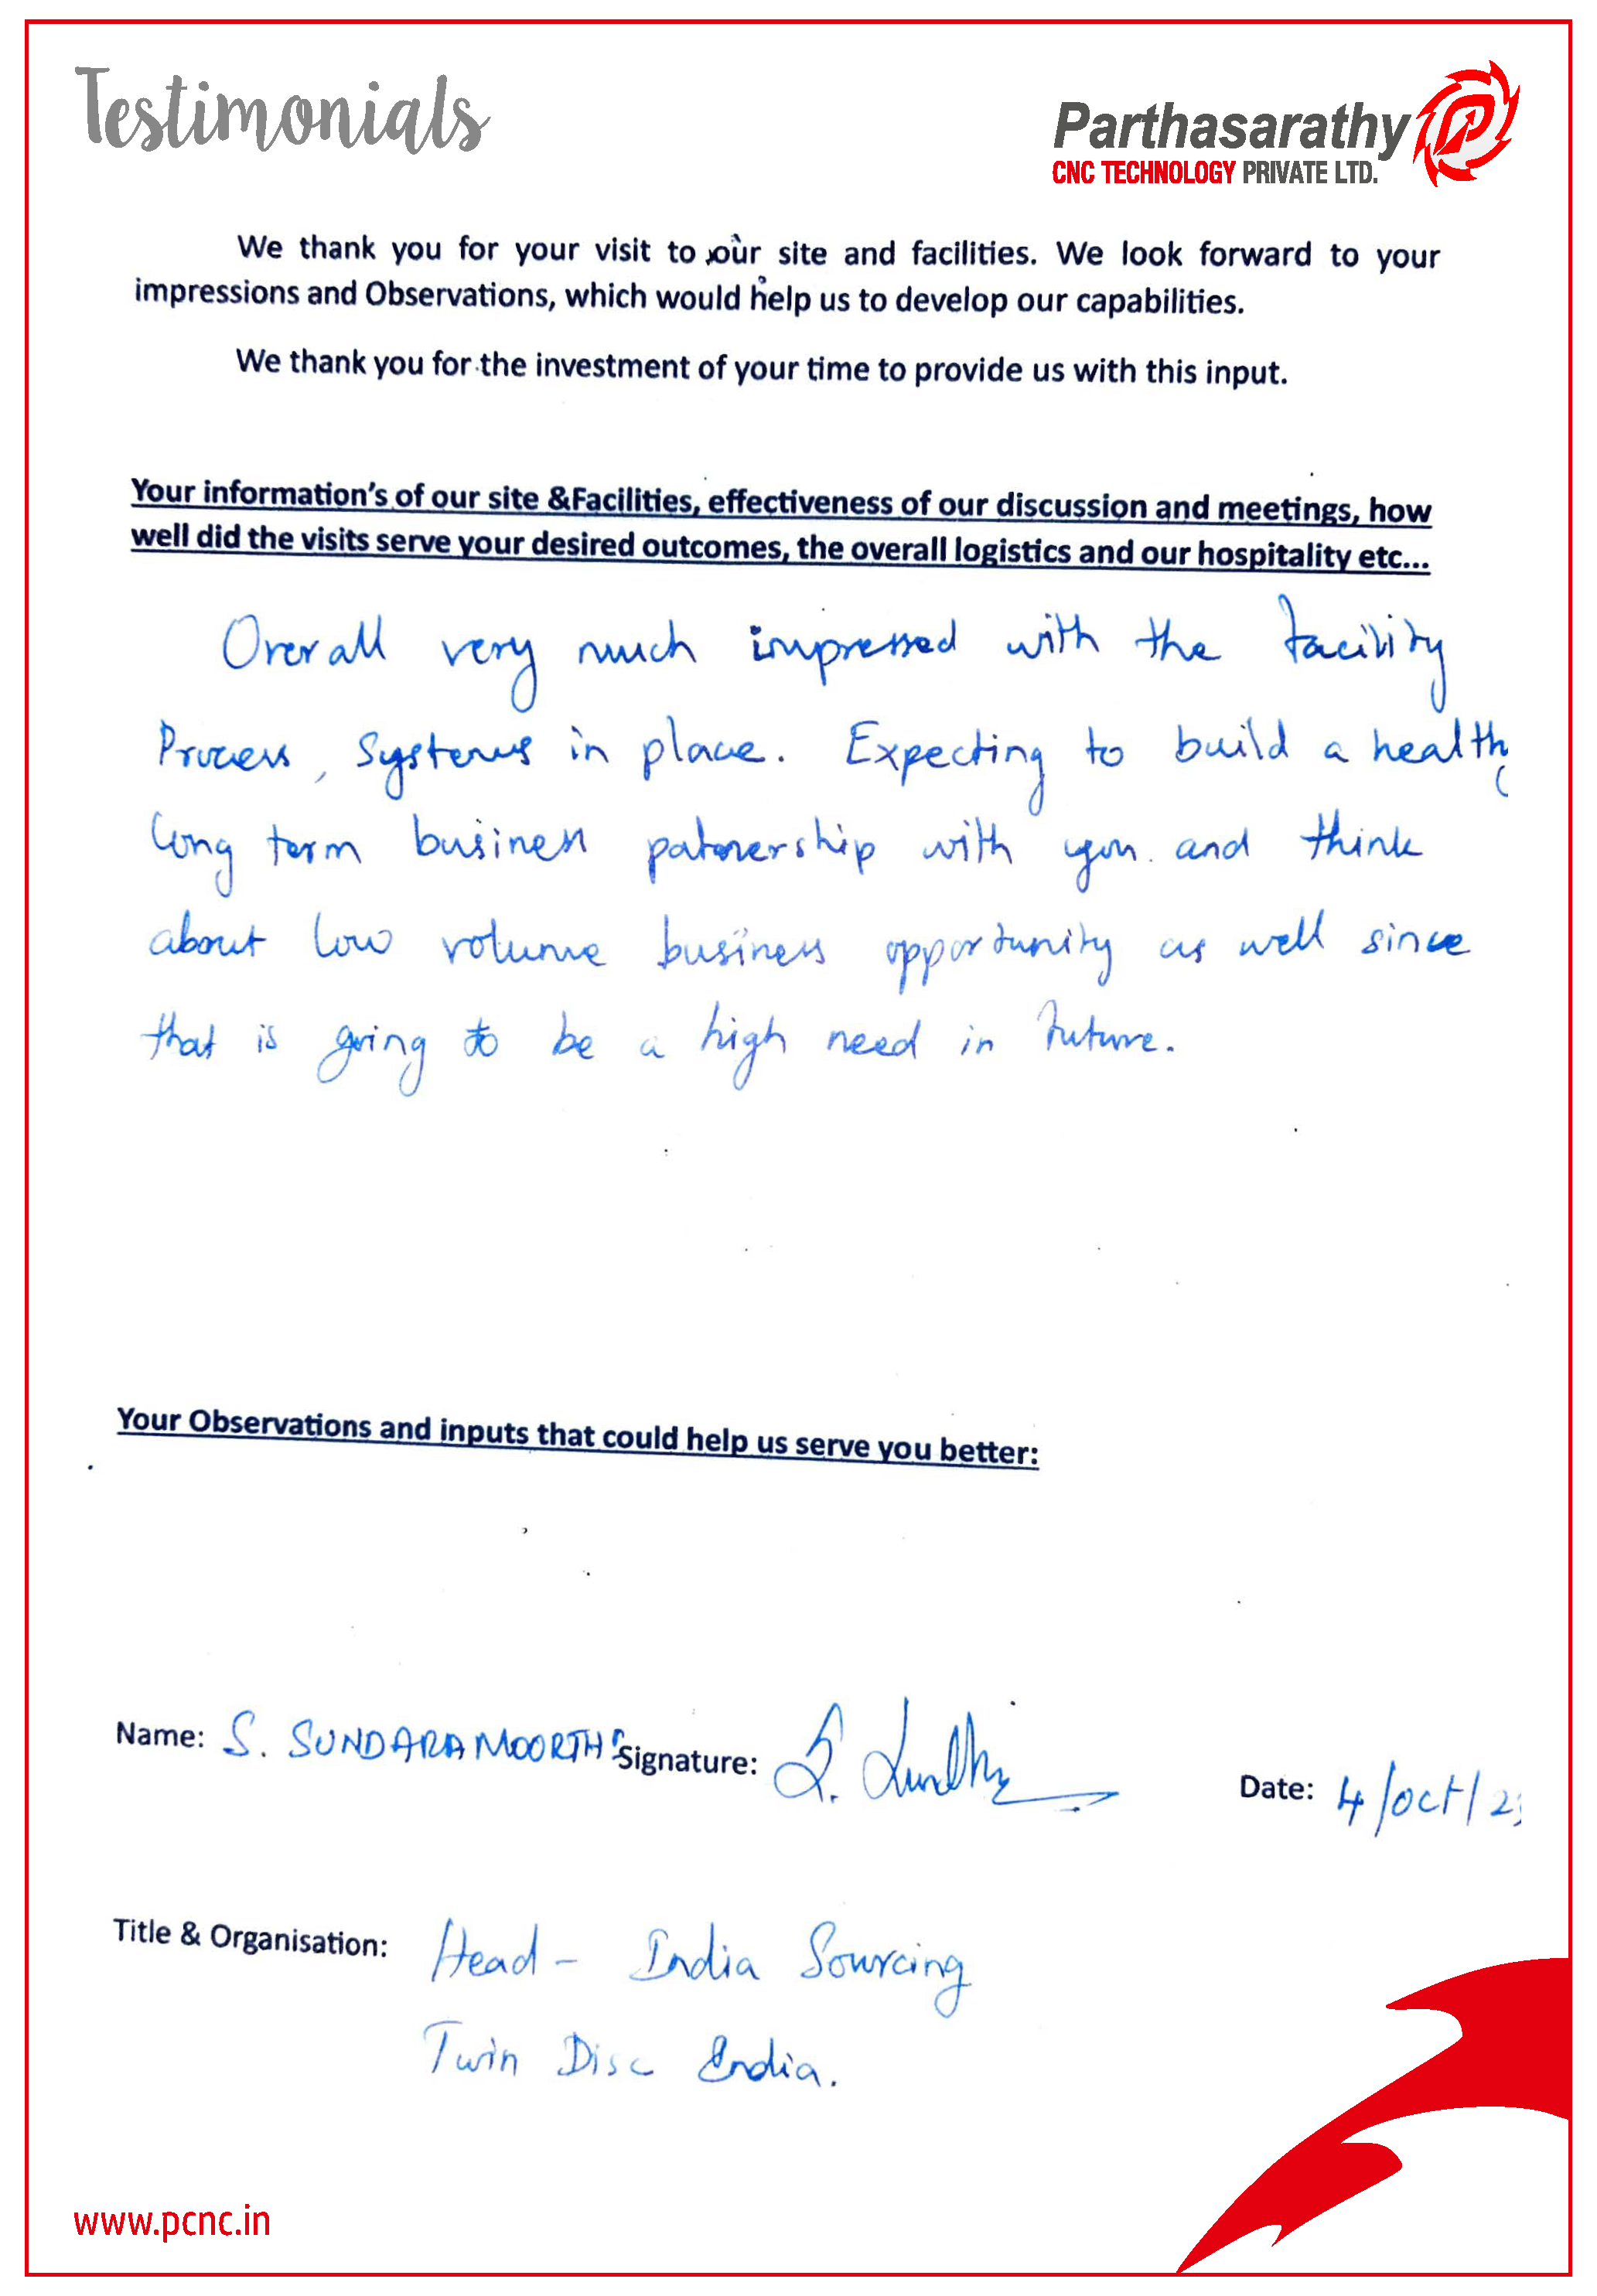 Testimonials
Parthasarathy
CNC TECHNOLOGY PRIVATE LTD.
We thank you for your visit to our site and facilities. We look forward to your
impressions and Observations, which would help us to develop our capabilities.
We thank you for the investment of your time to provide us with this input.
Your information's of our site &Facilities, effectiveness of our discussion and meetings, how
well did the visits serve your desired outcomes, the overall logistics and our hospitality etc...
Overall very much impressed with the facility
Process, Systems in place. Expecting to build a healthy
long term business patnership with you and think
about low volume business opportunity as well since
that is going to be a high need in future.
Your Observations and inputs that could help us serve you better:
Name: S. SUNDARAMOORTHY Signature:
Date: 4/Oct/
Title & Organisation: Head - India Sourcing
Twin Disc India.
www.pcnc.in